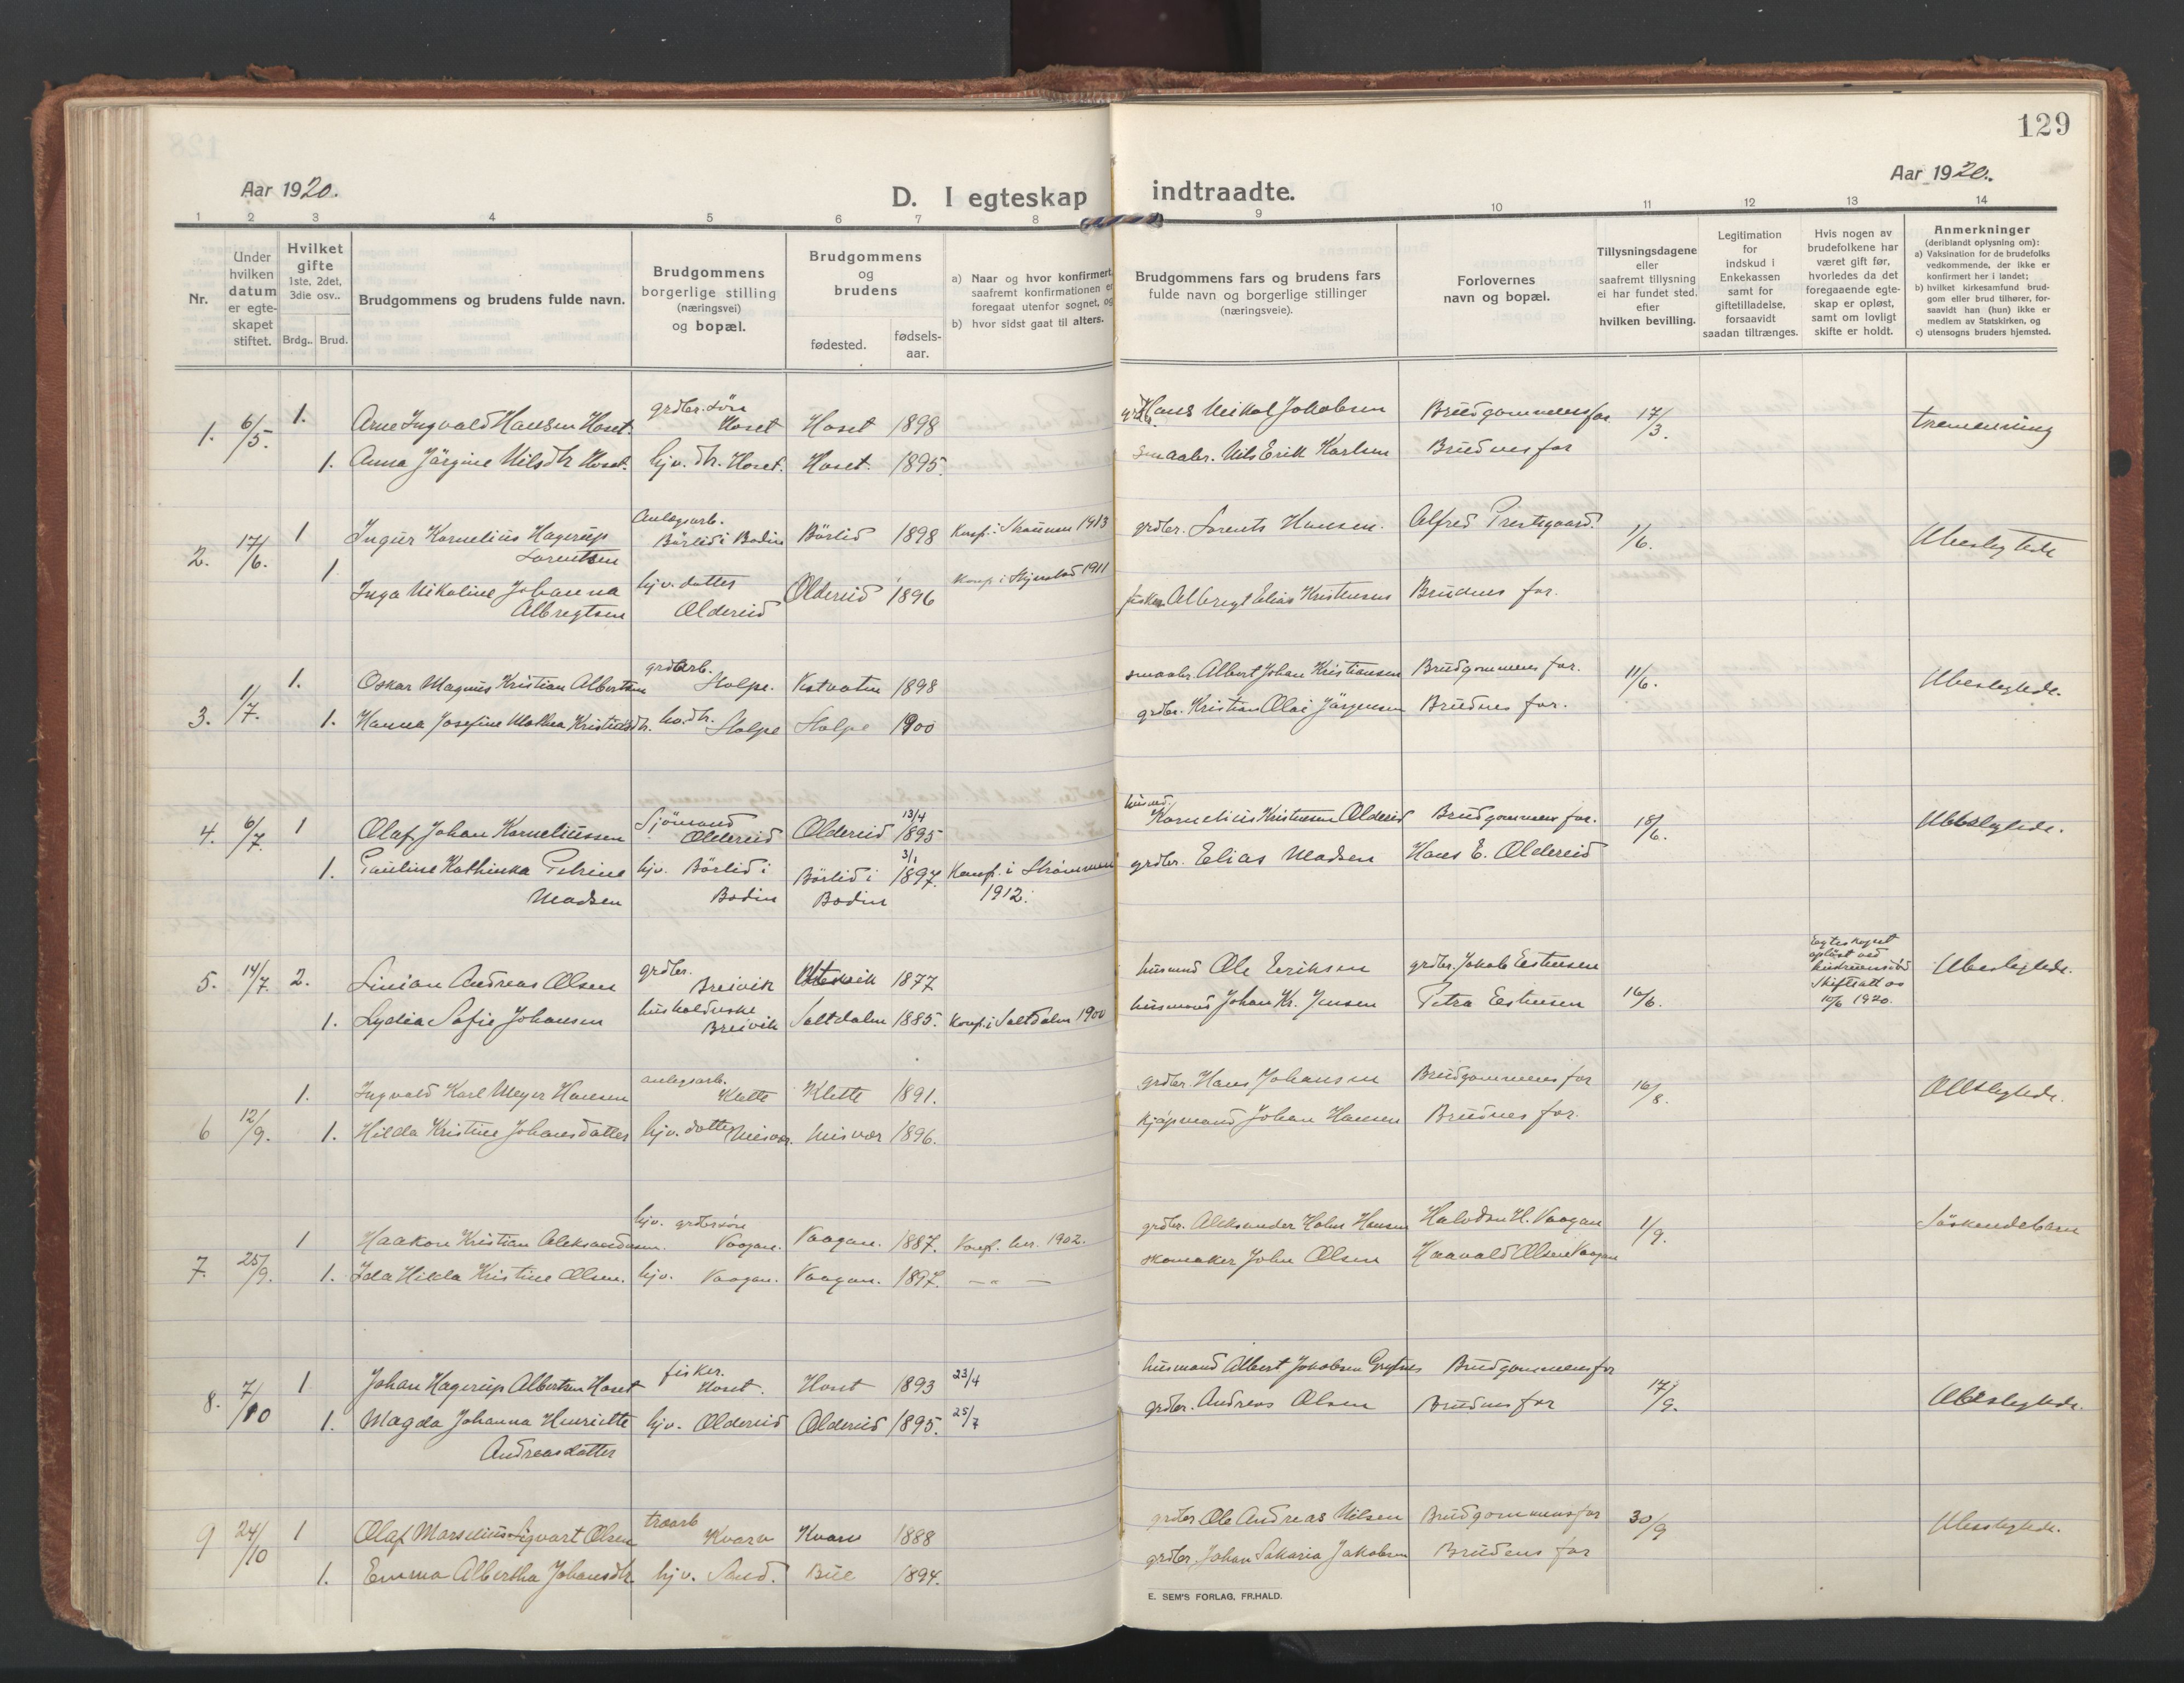 129
Aar 1920.
Aar 1920.
D. I egteskap indtraadte.
1 2 3 4 5 6 7 8 9 10 11 12 13 14
Nr.
Under hvilken datum er egteskapet stiftet.
Hvilket gifte 1ste, 2det, 3die osv..
Brdg.. Brud.
Brudgommens og brudens fulde navn.
Brudgommens borgerlige stilling (næringsvei) og bopæl.
Brudgommens og brudens
fødested.
fødsels-aar.
a) Naar og hvor konfirmert, saafremt konfirmationen er foregaat utenfor sognet, og
b) hvor sidst gaat til alters.
Brudgommens fars og brudens fars fulde navn og borgerlige stillinger (næringsveie).
Forlovernes navn og bopæl.
Tillysningsdagene eller saafremt tillysning ei har fundet sted. efter hvilken bevilling.
Legitimation for indskud i Enkekassen samt for giftetilladelse, forsaavidt saadan tiltrænges.
Hvis nogen av brudefolkene har været gift før, hvorledes da det foregaaende egteskap er opløst, samt om lovligt skifte er holdt.
Anmerkninger (deriblandt oplysning om):
a) Vaksination for de brudefolks vedkommende, der ikke er konfirmert her i landet;
b) hvilket kirkesamfund brudgom eller brud tilhører, forsaavidt han (hun) ikke er medlem av Statskirken, og
c) utensogns bruders hjemsted.
1. 6/5. 1. Arne Ingvald Hansen Hoset. grdbr. søn Hoset Hoset 1898 grdbr. Hans Nikol Jakobsen Brudgommens far 17/3. tremenning
1. Anna Jørgine Nilsdtr Hoset. hjv. dtr. Hoset. Hoset. 1895. smaabr. Nils Erik Karlsen Brudnes far
2. 17/6. 1 Ingvar Kornelius Hagerup Lorentsen Anlægsarb. Børlid i Bodin Børlid 1898 Konf. i 1913 grdbr. Lorents Hansen. Alfred Prestegaard. 1/6. Ubeslegtede
1 Inga Nikoline Johanna Albregtsen hjv. datter Oldereid Oldereid 1896 Konf. i Skjerstad 1911 fisker Albregt Elias Kristensen Brudnes far.
3. 1/7. 1. Oskar Magnus Kristian Albertsen grdbarb. Stolpe. 1898 smaabr. Albert Johan Kristiansen Brudgommens far. 11/6. Ubeslegtede.
1. Hanna Josefine Mathea Kristiansdtr. ho. dtr. Stolpe Stolpe 1900 grdbr. Kristian Olai Jørgensen Brudnes far.
4. 6/7. 1 Olaf Johan Korneliussen Sjömand Oldereid Oldereid 13/4 1895 husmd. Kornelius Kristensen Oldereid Brudgommens far. 18/6. Ubeslegtede.
1. Pauline Kathinka Petrine Madsen hjv. Börlid i Bodin Börlid i Bodin 3/1 1897. Konf. i Strømmen 1912. grdbr. Elias Madsen Hans E. Oldereid
5. 14/7. 2. Andreas Olsen grdbr. Breivik 1877 husmand Ole Eriksen grdbr. Jakob Estensen 16/6. Egteskapet opløst ved hustruens död Skifteatt. av 10/6 1920. Ubeslegtede.
1. Lydia Sofie Johansen husholderske Breivik Saltdalen 1885. Konf. i Saltdalen 1900 husmand Johan Kr. Jensen Petra Estensen
6 12/9. 1. Ingvald Karl Meyer Hansen anlegsarb. Klette Klette 1891. grdbr. Hans Johansen Brudgommens far 16/8. Ubeslegtede.
1. Hilda Kristine Johansdatter hjv. datter Misvær. Misvær 1896. Kjøpmand Johan Hansen Brudnes far.
7. 25/9. 1 Haakon Kristian Aleksandersen. hjv. grdbrsøn Vaagan. Vaagan. 1887. Konf. her. 1902. grdbr. Aleksander Holm Hansen Halvdan H. Vaagan 1/9. Söskendebarn
1. Ida Hilda Kristine Olsen. hjv. Vaagan. Vaagan. 1897. — " — skomaker John Olsen Haavald Olsen Vaagan
8. 7/10 1 Johan Hagerup Albertsen Hoset fisker. Hoset. Hoset 1893 23/4 husmand Albert Jakobsen Brudgommens far 17/9. Ubeslegtede.
1. Magda Johanna Henriette Andreasdatter hjv. Oldereid Oldereid 1895. 25/7 grdbr. Andreas Olsen Brudnes far
9 24/10 1 Olaf Marselius Sigvart Olsen Kvarv Kvarv 1888 grdbr. Ole Andreas Nilsen Brudgommens far 30/9 Ubeslegtede.
1. Emma Albertha Johansdtr. hjv. Sand. Bue 1894. grdbr. Johan Sakaria Jakobsen Brudens far
E. SEM'S FORLAG, FR.HALD.